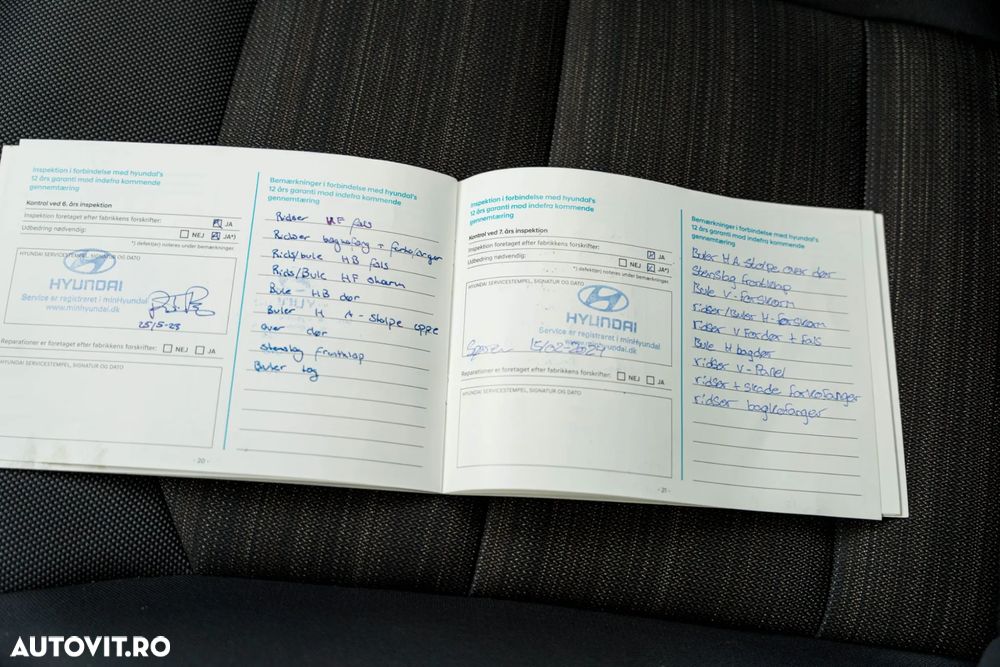 Inspektion i forbindelse med hyundai's
12 års garanti mod indefra kommende
gennemtæring
Kontrol ved 6. års inspektion
Inspektion foretaget efter fabrikkens forskrifter:
JA
Udbedring nødvendig:
NEJ
JA*)
*) defekt(er) noteres under bemærkninger
HYUNDAI SERVICESTEMPEL, SIGNATUR OG DATO
HYUNDAI
Service er registreret i minHyundai
www.minhyundai.dk
25/5-23
Reparationer er foretaget efter fabrikkens forskrifter:
NEJ
JA
HYUNDAI SERVICESTEMPEL, SIGNATUR OG DATO
- 20 -
Bemærkninger i forbindelse med hyundai's
12 års garanti mod indefra kommende
gennemtæring
Ridser HF fals
Ridser bagkofang + forkofanger
Rids/bule HB fals
Rids/Bule HF skærm
Bule HB dør
Buler H A-stolpe oppe
over dør
stenslag frontklap
Buler tag
Inspektion i forbindelse med hyundai's
12 års garanti mod indefra kommende
gennemtæring
Kontrol ved 7. års inspektion
Inspektion foretaget efter fabrikkens forskrifter:
JA
Udbedring nødvendig:
NEJ
JA*)
*) defekt(er) noteres under bemærkninger
HYUNDAI SERVICESTEMPEL, SIGNATUR OG DATO
HYUNDAI
Service er registreret i minHyundai
15/02-2024
Reparationer er foretaget efter fabrikkens forskrifter:
NEJ
JA
HYUNDAI SERVICESTEMPEL, SIGNATUR OG DATO
- 21 -
Bemærkninger i forbindelse med hyundai's
12 års garanti mod indefra kommende
gennemtæring
Buler H A stolpe over dør
Stenslag frontklap
Bule V-forskærm
ridser/Buler H-forskærm
ridser V Fordør + Fals
Bule H bagdør
ridser V-Panel
ridser + skade forkofanger
ridser bagkofanger
AUTOVIT.RO